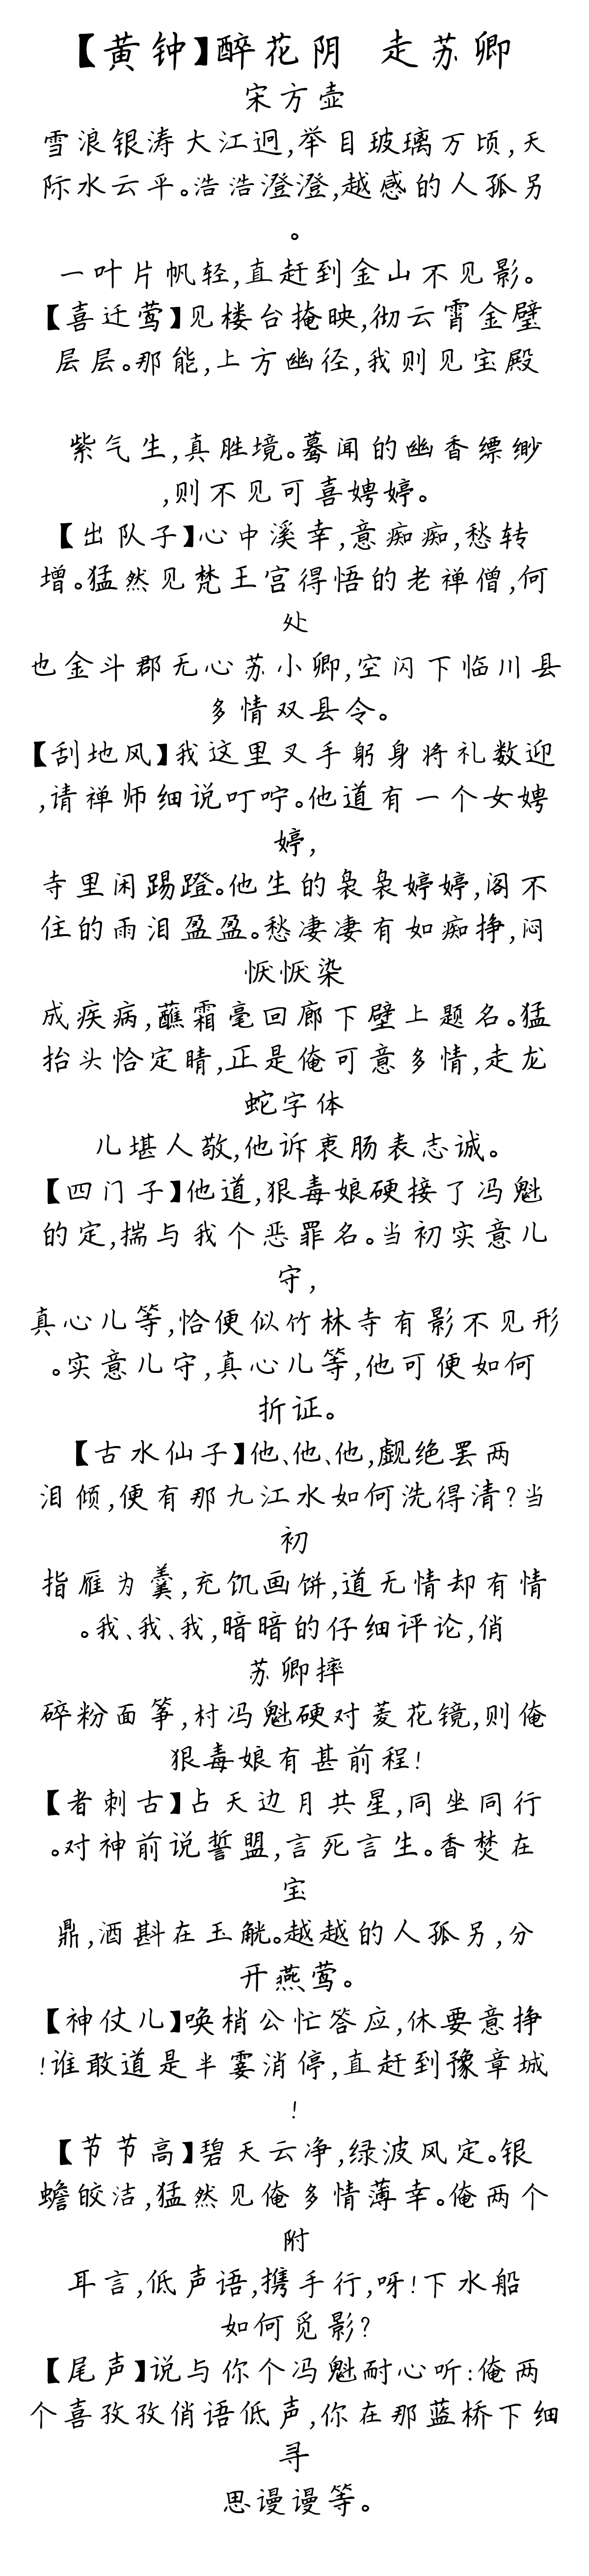 【黄钟】醉花阴 走苏卿
宋方壶
雪浪银涛大江迥,举目玻璃万顷,天
际水云平。浩浩澄澄,越感的人孤另
。
一叶片帆轻,直赶到金山不见影。
【喜迁莺】见楼台掩映,彻云霄金壁
层层。那能,上方幽径,我则见宝殿
紫气生,真胜境。蓦闻的幽香缥缈
,则不见可喜娉婷。
【出队子】心中溪幸,意痴痴,愁转
增。猛然见梵王宫得悟的老禅僧,何
处
也金斗郡无心苏小卿,空闪下临川县
多情双县令。
【刮地风】我这里叉手躬身将礼数迎
,请禅师细说叮咛。他道有一个女娉
婷,
寺里闲踢蹬。他生的袅袅婷婷,阁不
住的雨泪盈盈。愁凄凄有如痴挣,闷
恹恹染
成疾病,蘸霜毫回廊下壁上题名。猛
抬头恰定睛,正是俺可意多情,走龙
蛇字体
儿堪人敬,他诉衷肠表志诚。
【四门子】他道,狠毒娘硬接了冯魁
的定,揣与我个恶罪名。当初实意儿
守,
真心儿等,恰便似竹林寺有影不见形
。实意儿守,真心儿等,他可便如何
折证。
【古水仙子】他、他、他,觑绝罢两
泪倾,便有那九江水如何洗得清?当
初
指雁为羹,充饥画饼,道无情却有情
。我、我、我,暗暗的仔细评论,俏
苏卿摔
碎粉面筝,村冯魁硬对菱花镜,则俺
狠毒娘有甚前程!
【者刺古】占天边月共星,同坐同行
。对神前说誓盟,言死言生。香焚在
宝
鼎,酒斟在玉觥。越越的人孤另,分
开燕莺。
【神仗儿】唤梢公忙答应,休要意挣
!谁敢道是半霎消停,直赶到豫章城
!
【节节高】碧天云净,绿波风定。银
蟾皎洁,猛然见俺多情薄幸。俺两个
附
耳言,低声语,携手行,呀!下水船
如何觅影?
【尾声】说与你个冯魁耐心听:俺两
个喜孜孜俏语低声,你在那蓝桥下细
寻
思谩谩等。